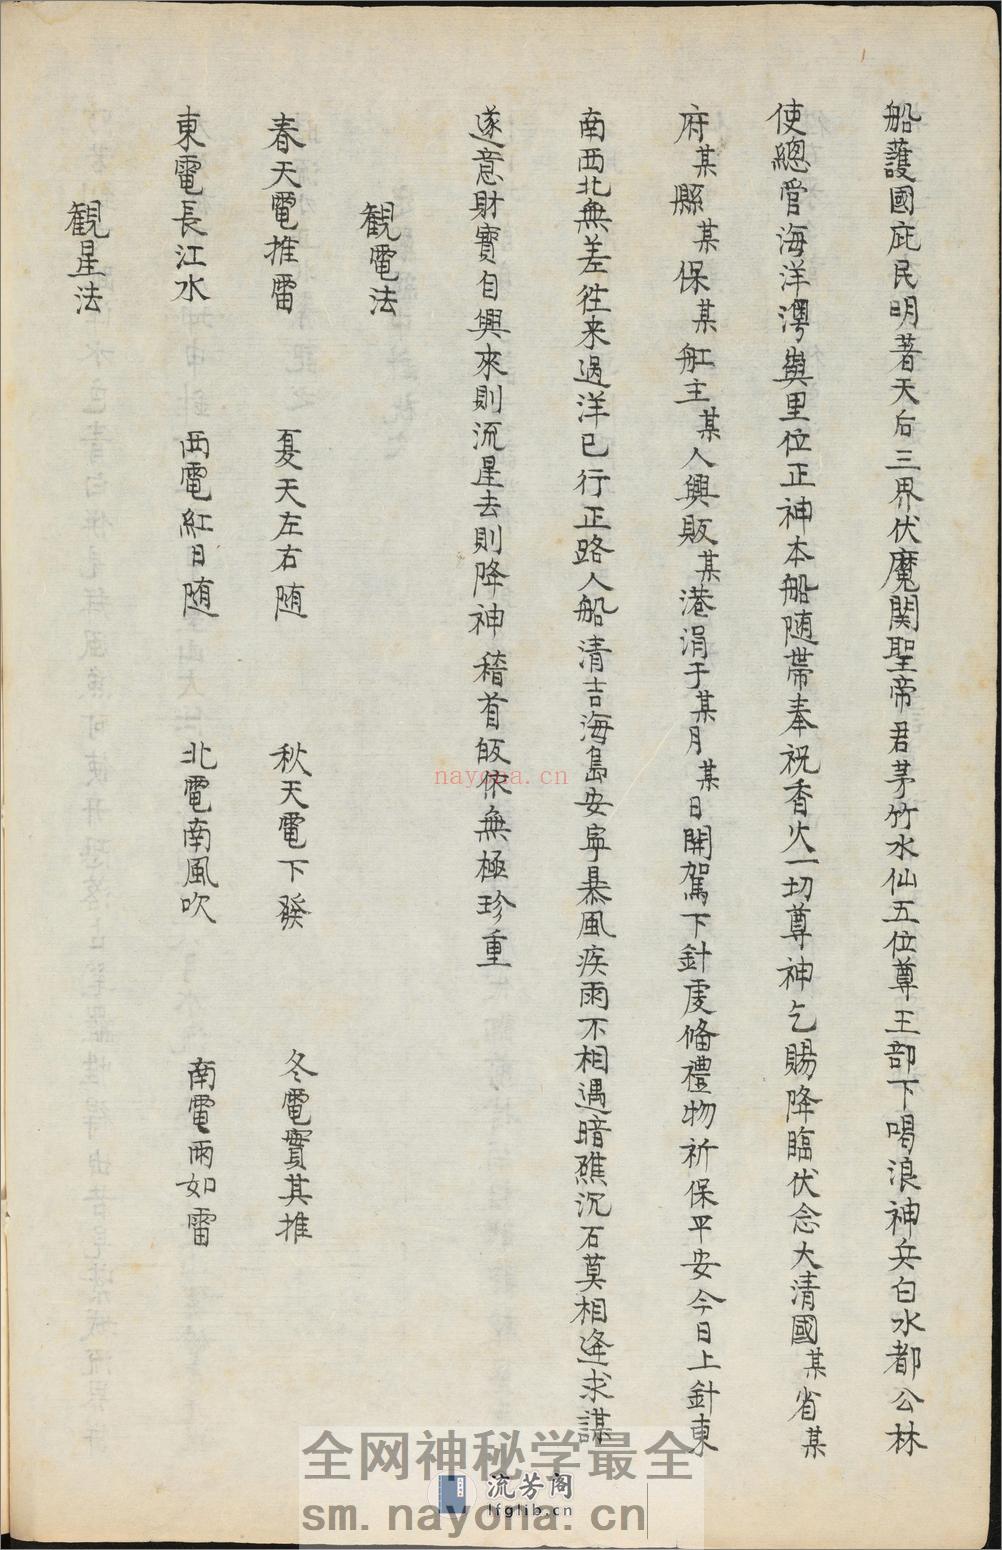 船護國庇民明著天后三界伏魔関聖帝君茅竹水仙五位尊王部下喝浪神兵白水都公林
使總官海洋澳與里位正神本船随帶奉祝香火一切尊神乞賜降臨伏念大清國某省某
府某縣某保某舡主某人興販某港涓于某月某日開駕下針虔偹禮物祈保平安今日上針東
南西北無差徃来過洋已行正路人船清吉海島安寧暴風疾雨不相遇暗礁沉石莫相逄求謀
遂意財寶自興來則流星去則降神稽首皈依無極珍重
観電法
春天電推雷 夏天左右随 秋天電下發 冬電實其推
東電長江水 西電紅日随 北電南風吹 南電兩如雷
観星法
nayona.cn
全网神秘学最全
流芳阁
lfglib.cn
sm.nayona.cn